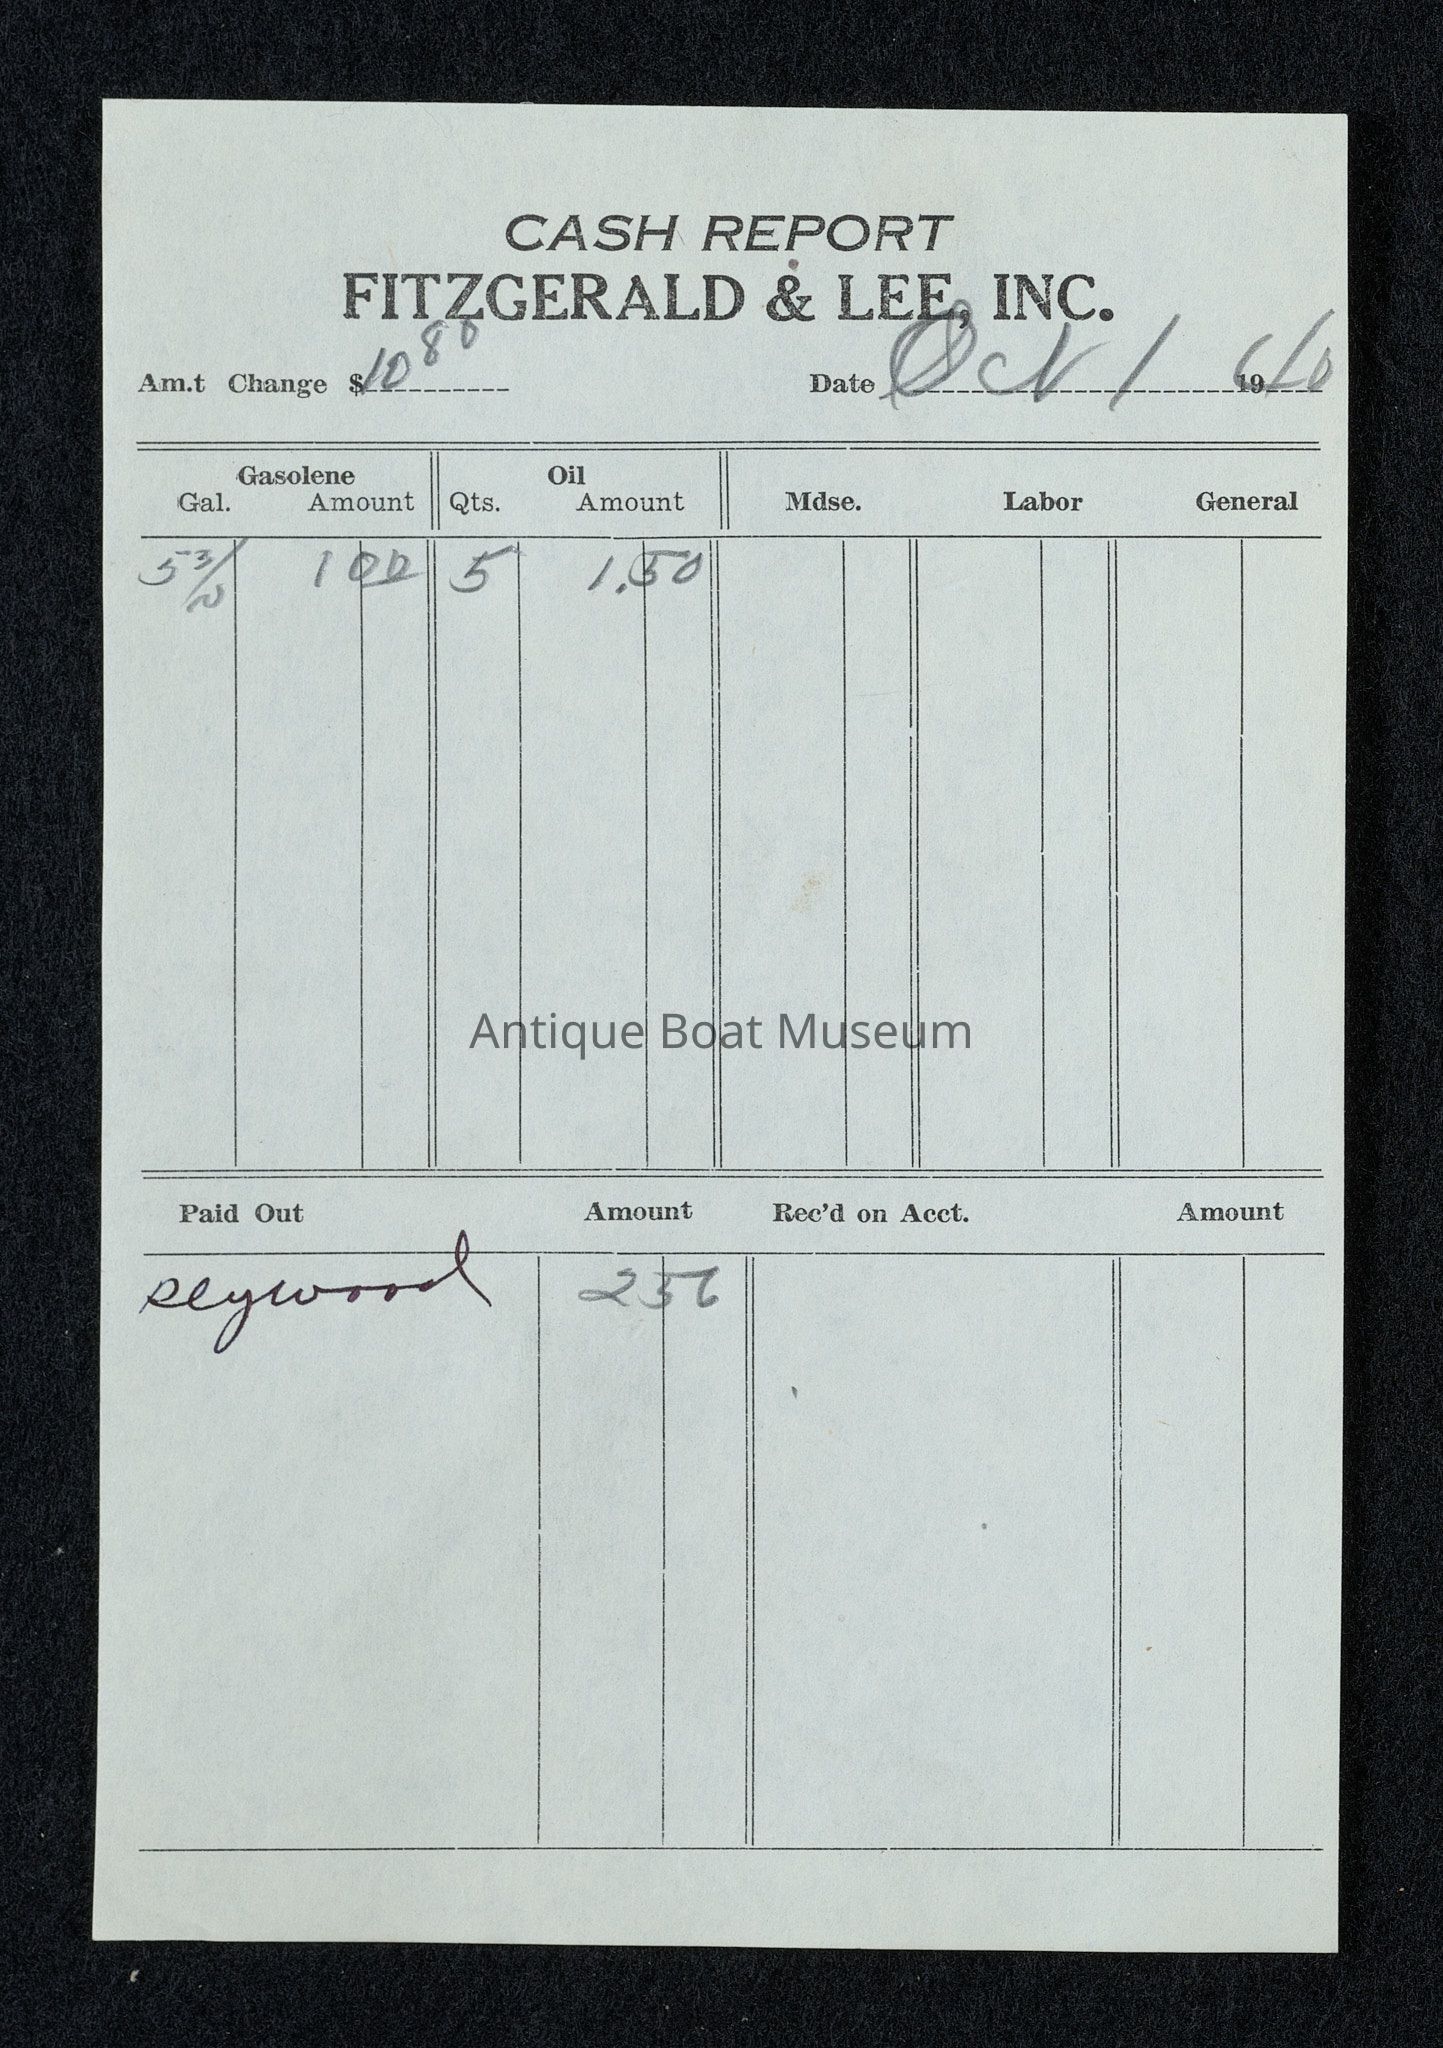 CASH REPORT
FITZGERALD & LEE, INC.
Am.t Change $10 80 Date Oct 1 1960
Gasolene Oil
Gal. Amount Qts. Amount Mdse. Labor General
5 3/10 1 00 5 1.50
Antique Boat Museum
Paid Out Amount Rec'd on Acct. Amount
plywood 2 56